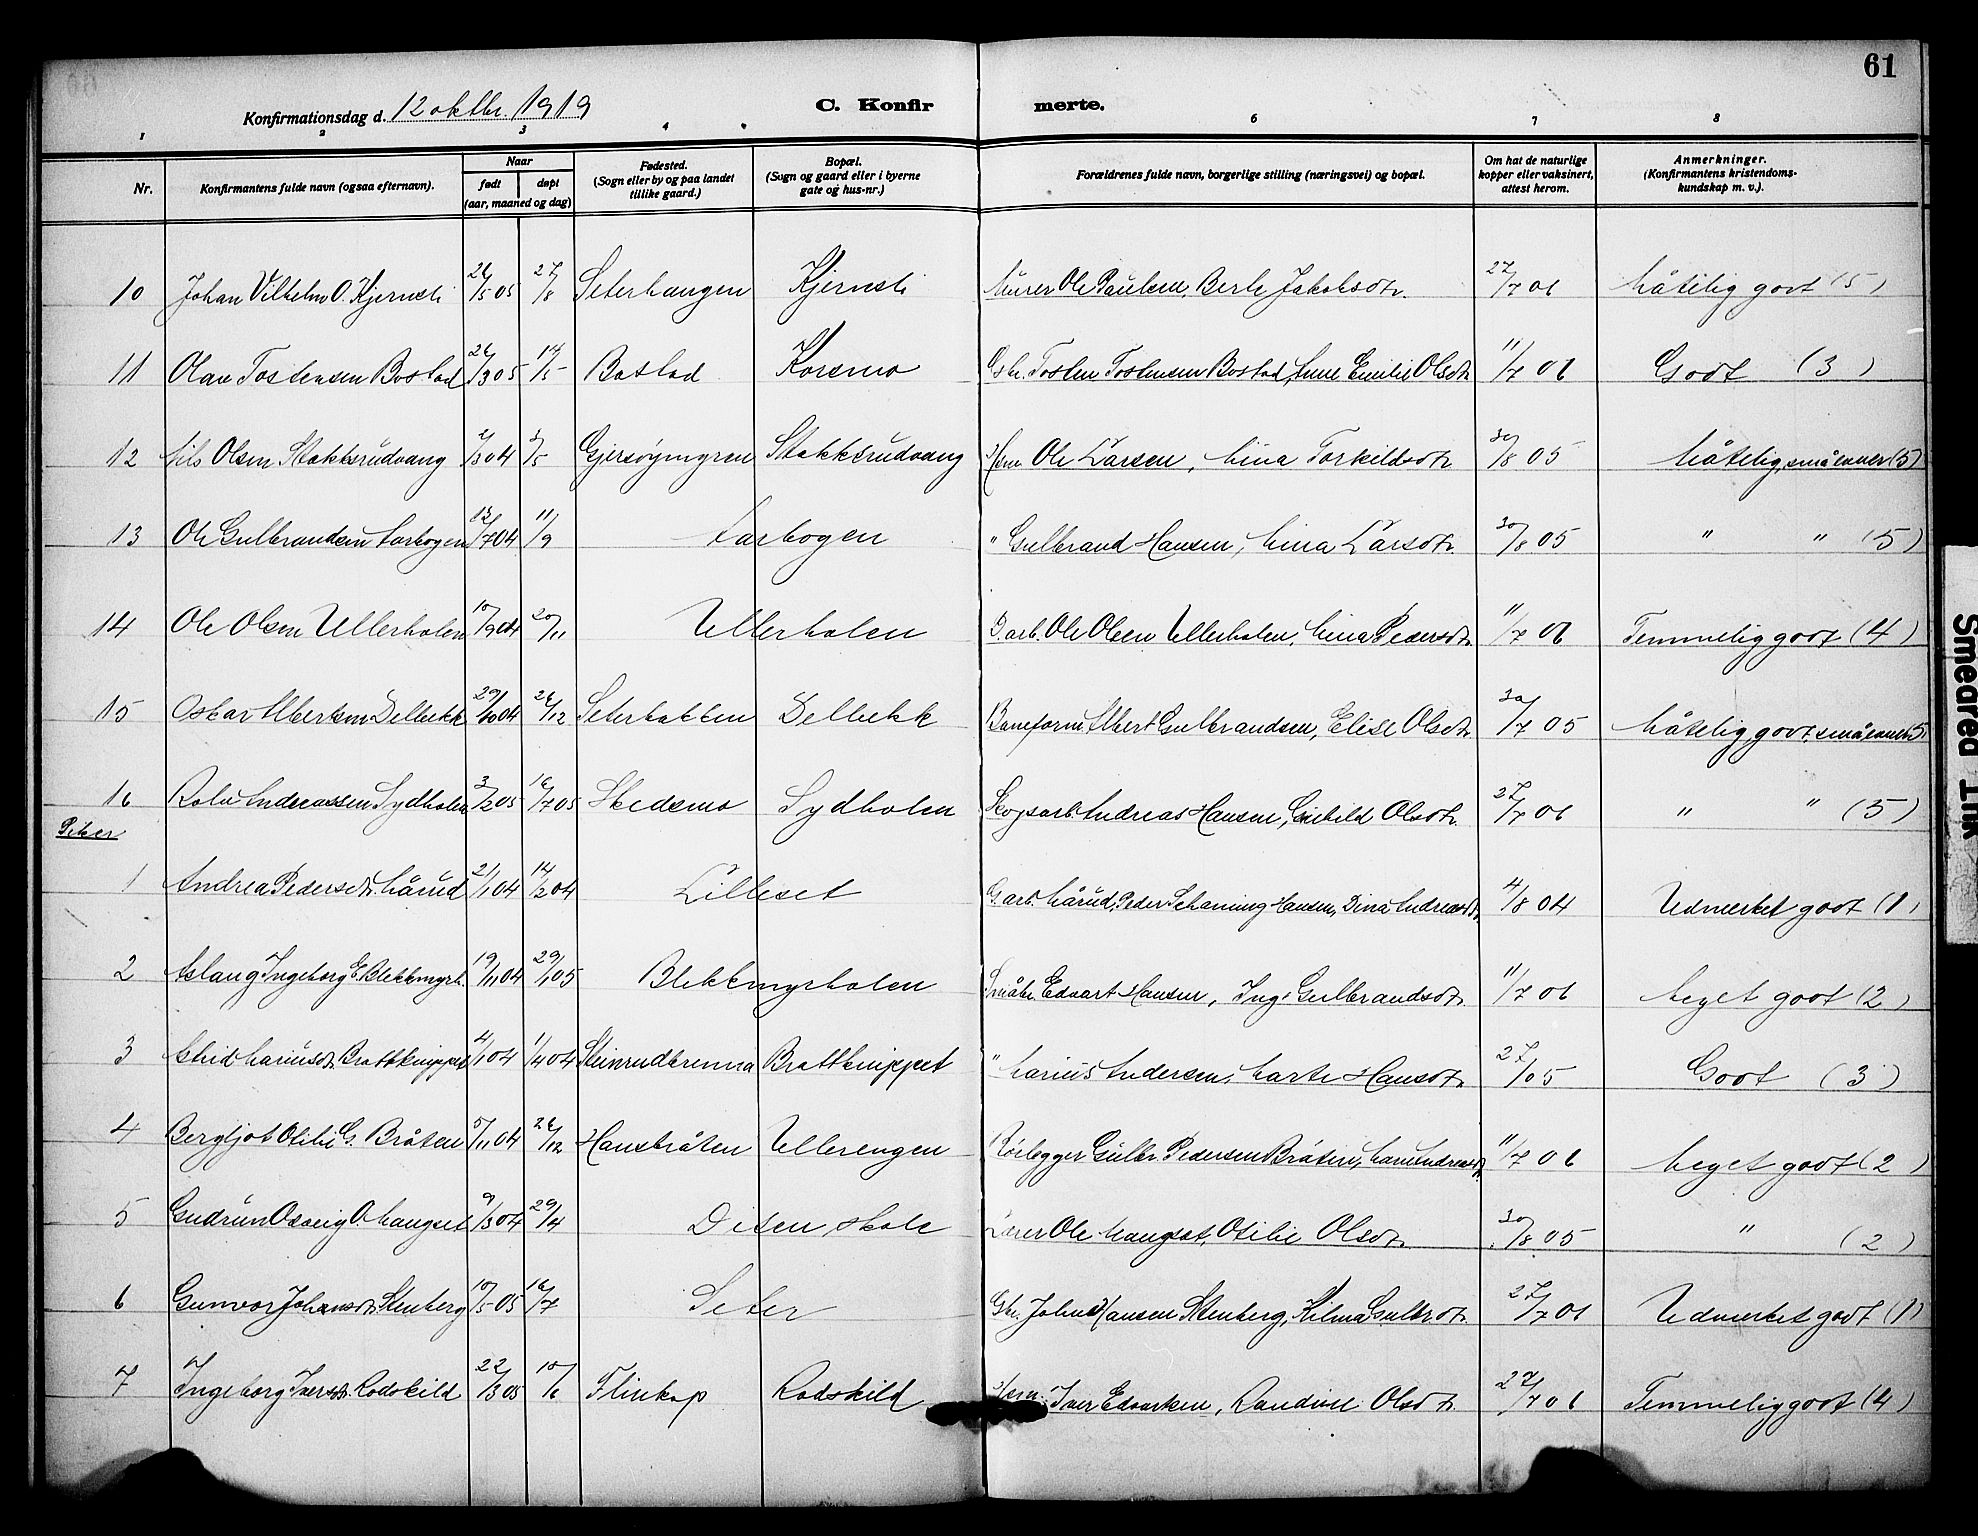 61
Konfirmationsdag d. 12 oktbr. 1919
C. Konfir merte.
1 2 3 4 6 7 8
Nr.
Konfirmantens fulde navn (ogsaa efternavn).
Naar
født døpt
(aar, maaned og dag)
Fødested.
(Sogn eller by og paa landet
tillike gaard.)
Bopæl.
(Sogn og gaard eller i byerne
gate og hus-nr.)
Forældrenes fulde navn, borgerlige stilling (næringsvei) og bopæl.
Om hat de naturlige
kopper eller vaksinert,
attest herom.
Anmerkninger.
(Konfirmantens kristendoms-
kundskap m. v.).
10 Johan Vilhelm O. Kjernsli 26/5 05 27/8 Seterhaugen Kjernsli Murer Ole Paulsen, Berte Jakobsdtr. 27/7 06 Måtelig godt (5)
11 Olav Tostensen Bostad 26/3 05 14/5 Bostad Korsmo Gbr. Tosten Tostensen Bostad, Anne Emilie Olsdtr. 11/7 06 Godt (3)
12 Nils Olsen Stokksrudvang 2/3 04 3/5 Gjersøymyren Stokksrudvang Hsm. Ole Larsen, Mina Torkildsdtr. 30/8 05 Måtelig, små evner (5)
13 Ole Gulbrandsen Aarbogen 13/7 04 11/9 Aarbogen " Gulbrand Hansen, Mina Larsdtr. 30/8 05 " " (5)
14 Ole Olsen Ullerholen 10/9 04 20/11 Ullerholen G.arb. Ole Olsen Ullerholen, Mina Pedersdtr. 11/7 06 Temmelig godt (4)
15 Oskar Albertsen Delbekk 29/10 04 26/12 Seterbakken Delbekk Baneform. Albert Gulbrandsen, Elise Olsdtr. 30/7 05 Måtelig godt, små evner (5)
16 Rolv Andreassen Sydholen 3/2 05 16/7 05 Skedsmo Sydholen Skogsarb. Andreas Hansen, Gunhild Olsdtr. 27/7 06 " " (5)
Piker
1 Andrea Pedersdtr. Mårud 2/1 04 14/2 04 Lilleset G.arb. Mårud, Peder Schaning Hansen, Dina Andreasdtr. 4/8 04 Udmerket godt (1)
2 Aslaug Ingeborg E. Blekkmyrh. 19/11 04 29/1 05 Blekkmyrholen Småbr. Edvart Hansen, Ing. Gulbrandsdtr. 11/7 06 Meget godt (2)
3 Astrid Mariusdtr. Brattknippet 4/1 04 1/4 04 Steinrudbrenna Brattknippet " Marius Andersen, Marte Hansdtr. 27/ 05 Godt (3)
4 Bergljot Otilie G. Bråten 5/11 04 26/12 Hansbråten Ullerengen Rørlegger Gulbr. Pedersen Bråten, Marie Andreasdtr. 11/7 06 Meget godt (2)
5 Gudrun Osveig O. Maugset 9/3 04 29/4 Disen skole Lærer Ole Maugset, Otilie Olsdtr. 30/8 05 " (2)
6 Gunvor Johansdtr. Stenberg 10/5 05 16/7 Seter Gbr. Johan Hansen Stenberg, Hilma Gulbr.dtr. 27/7 06 Udmerket godt (1)
7 Ingeborg Iversdtr. Rodskild 22/3 05 10/6 Flinkap Rodskild Hsm. Iver Edvartsen, Randine Olsdtr. 27/7 06 Temmelig godt (4)
Smeared Ink